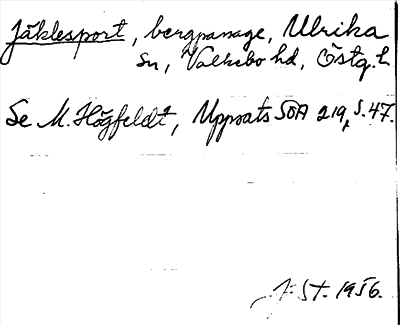 Jäklesport, bergpassage, Ulrika
sn, Valkebo hd, Östg. l.
Se M. Högfeldt, Uppsats SOÄ 219, s. 47.
J. St. 1956.